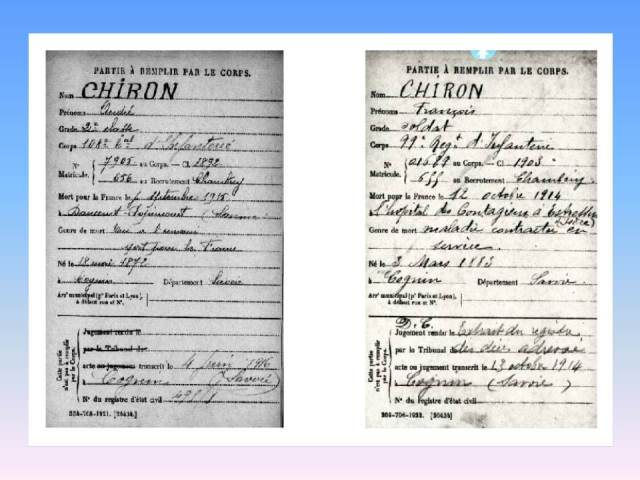 PARTIE À REMPLIR PAR LE CORPS.
Nom CHIRON
Prénoms André
Grade 2e classe
Corps 108e d'Infanterie
N° 7905 au Corps. — Cl. 1892
Matricule. 656 au Recrutement Chambéry
Mort pour la France le septembre 1915
à
Genre de mort Tué à l'ennemi
Mort pour la France
Né le 18 mars 1872
à Cognin Département Savoie
Arrt municipal (pr Paris et Lyon), à défaut rue et N°.
Cette partie n'est pas à remplir par le Corps.
Jugement rendu le
par le Tribunal de
acte ou jugement transcrit le 4 juin 1916
à Cognin (Savoie)
N° du registre d'état civil
354-708-1921. [26434]
PARTIE À REMPLIR PAR LE CORPS.
Nom CHIRON
Prénoms François
Grade soldat
Corps 99e Régt d'Infanterie
N° 01589 au Corps. — Cl. 1903
Matricule. au Recrutement Chambéry
Mort pour la France le 12 octobre 1914
à l'hôpital des Contagieux à
(Isère)
Genre de mort maladie contractée en
service.
Né le 3 Mars 1883
à Cognin Département Savoie
Arrt municipal (pr Paris et Lyon), à défaut rue et N°.
Cette partie n'est pas à remplir par le Corps.
D. C.
Jugement rendu le Extrait du registre
par le Tribunal de des décès adressé
acte ou jugement transcrit le 13 octobre 1914
à Cognin (Savoie)
N° du registre d'état civil
[26434]